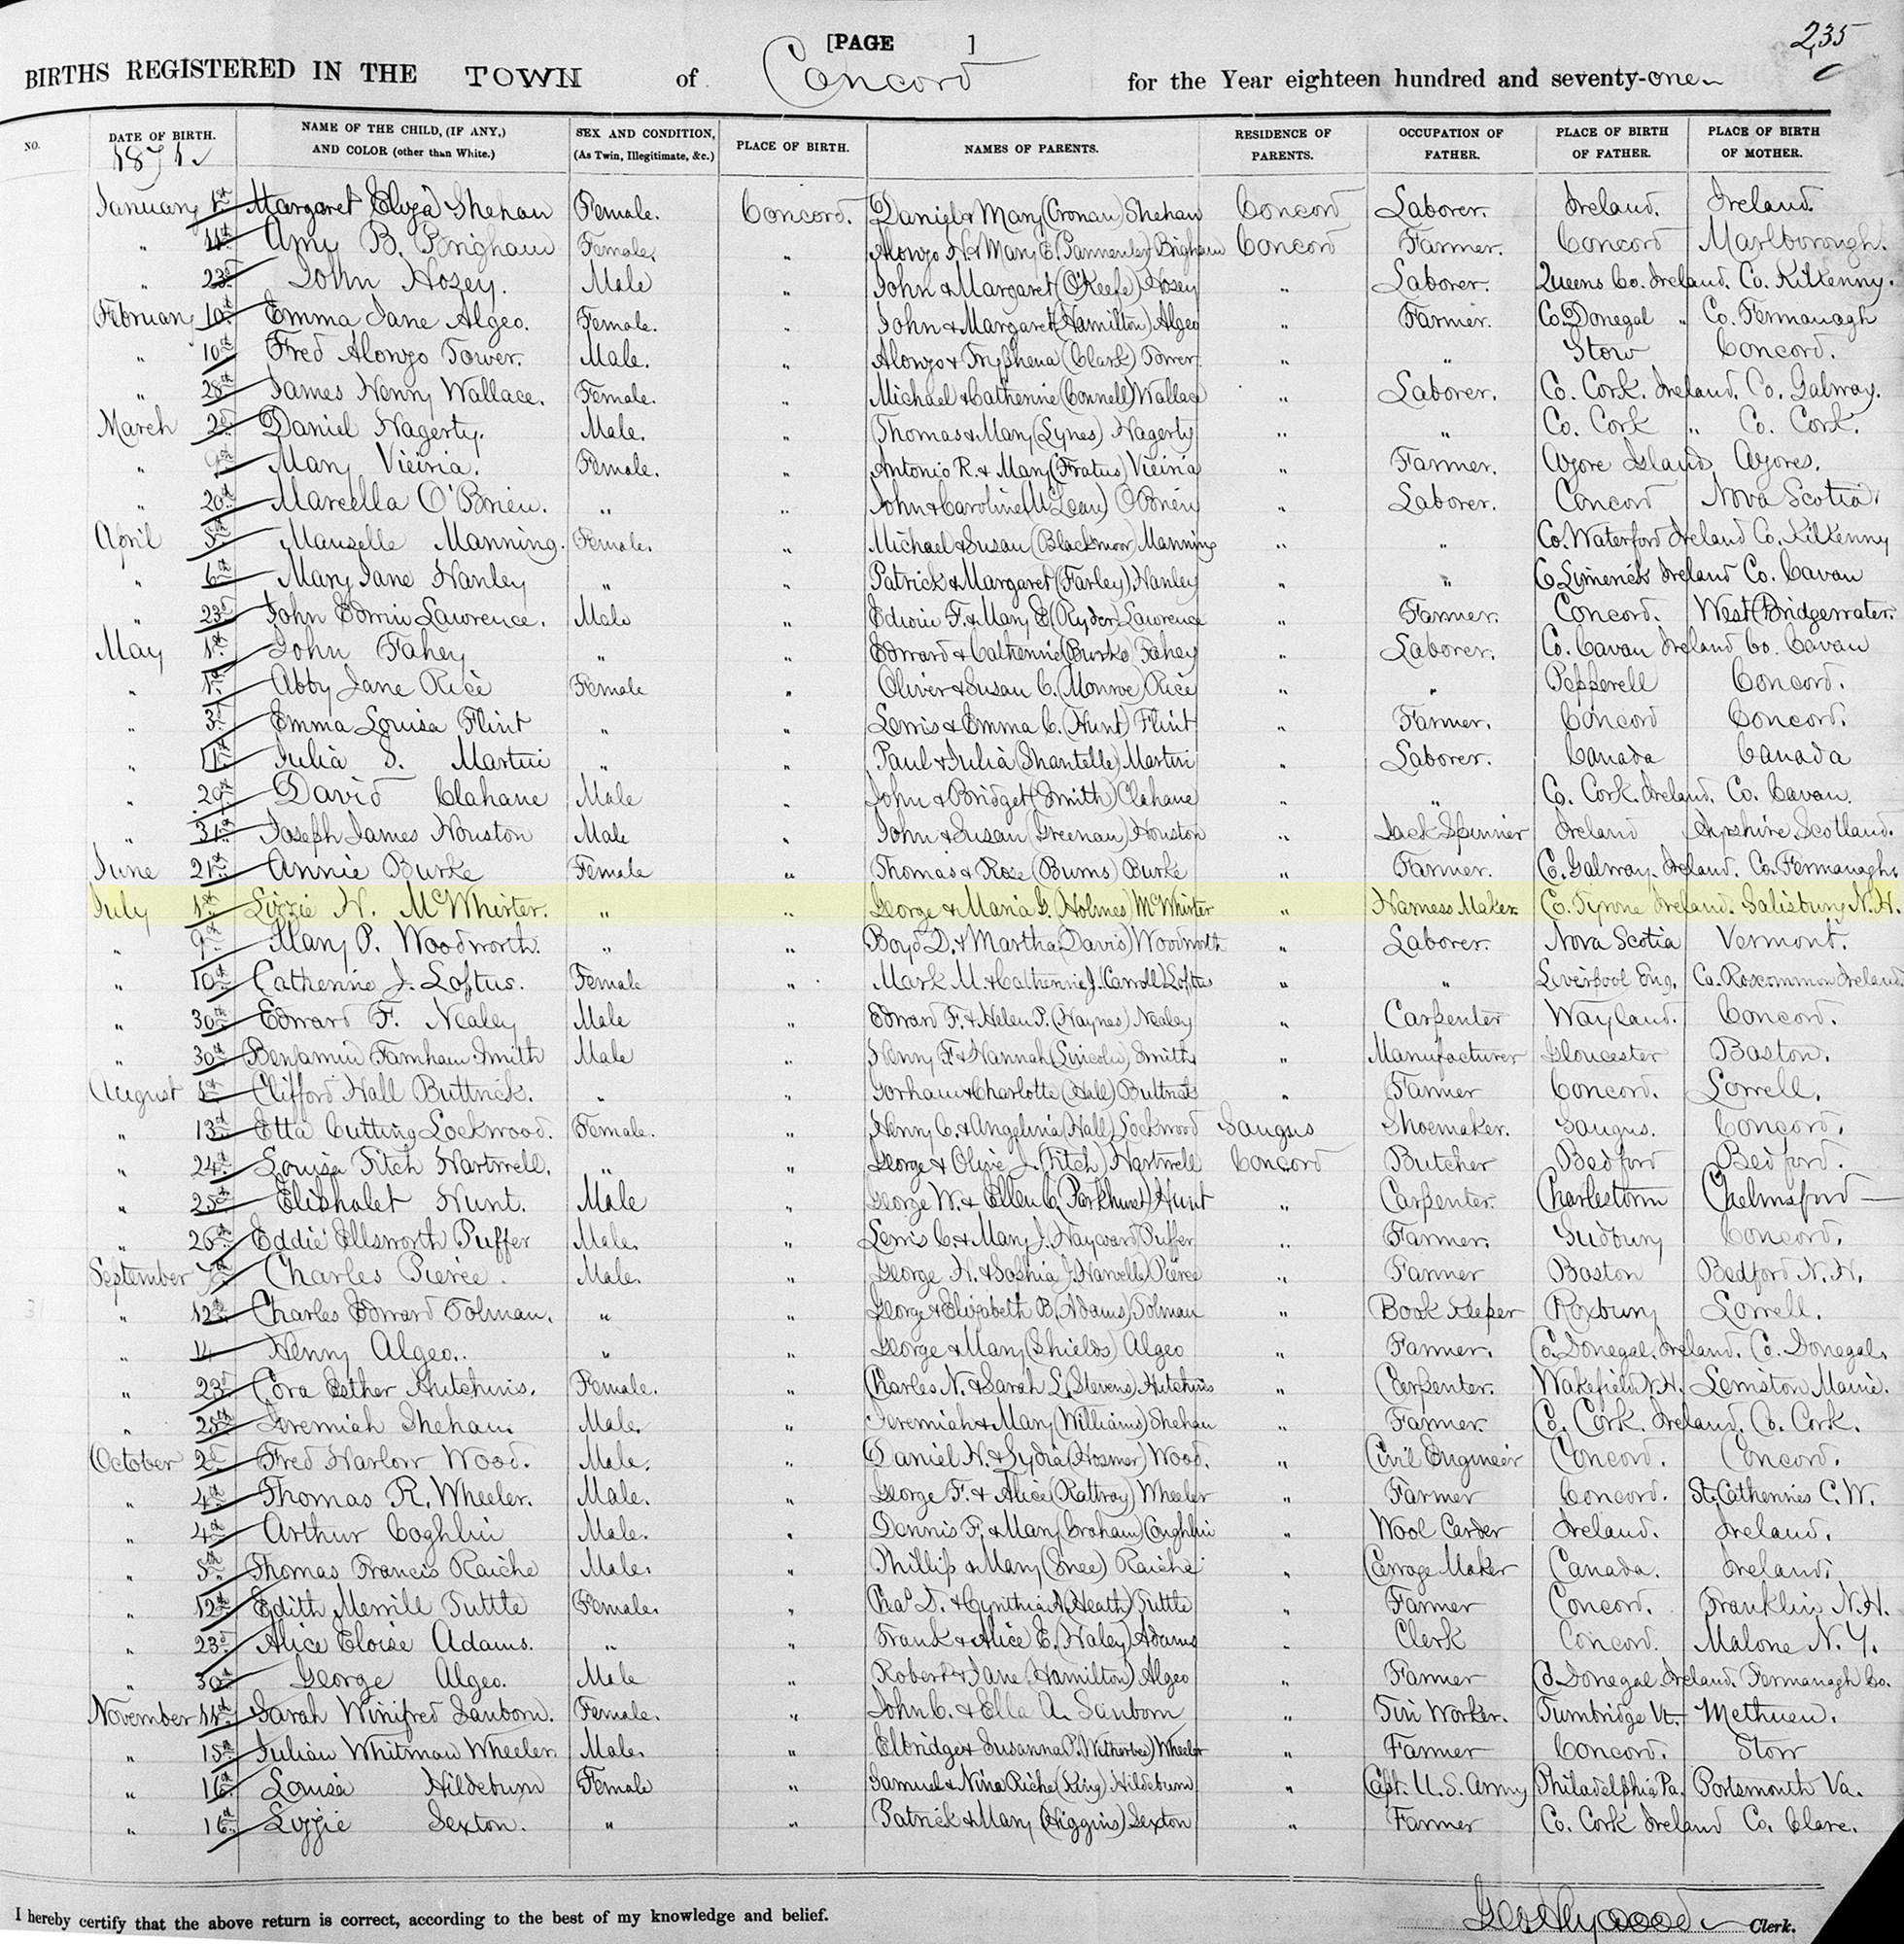 235
[PAGE ]
BIRTHS REGISTERED IN THE TOWN of Concord for the Year eighteen hundred and seventy-one
NO. DATE OF BIRTH. 1871 NAME OF THE CHILD, (IF ANY,) AND COLOR (other than White.) SEX AND CONDITION, (As Twin, Illegitimate, &c.) PLACE OF BIRTH. NAMES OF PARENTS. RESIDENCE OF PARENTS. OCCUPATION OF FATHER. PLACE OF BIRTH OF FATHER. PLACE OF BIRTH OF MOTHER.
January 1st Margaret Eliza Shehan Female. Concord. Daniel & Mary (Cronan) Shehan Concord Laborer. Ireland. Ireland.
" 11th Amy B. Brigham Female. " Alonzo H. & Mary E. (Parmenter) Brigham Concord Farmer. Concord Marlborough.
" 23d John Hosey. Male " John & Margaret (O'Keefe) Hosey " Laborer. Queens Co. Ireland. Co. Kilkenny.
February 10th Emma Jane Algeo. Female. " John & Margaret (Hamilton) Algeo " Farmer. Co. Donegal " Co. Fermanagh
" 10th Fred Alonzo Tower. Male. " Alonzo & Tryphena (Clark) Tower " " Stow Concord.
" 28th James Henry Wallace. Female. " Michael & Catherine (Connell) Wallace " Laborer. Co. Cork. Ireland. Co. Galway.
March 2d Daniel Hagerty. Male. " Thomas & Mary (Lynes) Hagerty " " Co. Cork " Co. Cork.
" 9th Mary Vieiria. Female. " Antonio R. & Mary (Fratus) Vieiria " Farmer. Azore Island Azores.
" 20th Marcella O'Brien. " " John & Caroline (McLean) O'Brien " Laborer. Concord Nova Scotia
April 5th Manzelle Manning. Female. " Michael & Susan (Blackmoor) Manning " " Co. Waterford Ireland Co. Kilkenny
" 6th Mary Jane Hanley " " Patrick & Margaret (Farley) Hanley " " C. Limerick Ireland Co. Cavan
" 23d John Edwin Lawrence. Male " Edwin F. & Mary E. (Ryder) Lawrence " Farmer. Concord. West Bridgewater.
May 1st John Fahey " " Edward & Catherine (Burke) Fahey " Laborer. Co. Cavan Ireland Co. Cavan
" 1st Abby Jane Rice Female " Oliver & Susan C. (Monroe) Rice " " Pepperell Concord.
" 3d Emma Louisa Flint " " Lewis & Emma C. (Hunt) Flint " Farmer. Concord Concord.
" Julia S. Martin " " Paul & Julia (Shantelle) Martin " Laborer. Canada Canada
" 29th David Clahane Male " John & Bridget (Smith) Clahane " " Co. Cork. Ireland. Co. Cavan.
" 31st Joseph James Houston Male " John & Susan (Greenan) Houston " Jack Spinner Ireland Ayrshire, Scotland.
June 21st Annie Burke Female " Thomas & Rose (Burns) Burke " Farmer. C. Galway. Ireland. Co. Fermanagh.
July 1st Lizzie H. McWhirter. " " George & Maria G. (Holmes) McWhirter " Harness Maker. C. Tyrone Ireland. Salisbury N.H.
" 9th Mary P. Woodworth. " " Boyd D. & Martha (Davis) Woodworth " Laborer. Nova Scotia Vermont.
" 10th Catherine J. Loftus. Female " Mark M. & Catherine J. (Carroll) Loftus " " Liverpool Eng. Co. Roscommon Ireland
" 30th Edward F. Nealey Male " Edward F. & Helen P. (Haynes) Nealey " Carpenter Wayland. Concord.
" 30th Benjamin Farnham Smith Male " Henry F. & Hannah (Lincoln) Smith " Manufacturer Gloucester Boston.
August 1st Clifford Hall Buttrick. " " Gorham & Charlotte (Hall) Buttrick " Farmer Concord. Lowell.
" 13th Etta Cutting Lockwood. Female. " Henry C. & Angelina (Hall) Lockwood Saugus Shoemaker. Saugus. Concord.
" 24th Louisa Fitch Hartwell. " " George & Olive J. (Fitch) Hartwell Concord Butcher Bedford Bedford.
" 25th Eliphalet Hunt. Male " George W. & Ellen C. (Parkhurst) Hunt " Carpenter. Charlestown Chelmsford
" 26th Eddie Ellsworth Puffer Male. " Lewis C. & Mary J. (Hayward) Puffer " Farmer. Sudbury Concord.
September 7th Charles Pierce. Male. " George H. & Sophia J. (Harvelle) Pierce " Farmer Boston Bedford N.H.
" 12th Charles Edward Tolman. " " George & Elizabeth B. (Adams) Tolman " Book Keeper Roxbury Lowell.
" 14 Henry Algeo. " " George & Mary (Shields) Algeo " Farmer. Co. Donegal. Ireland. Co. Donegal.
" 23d Cora Esther Hutchins. Female. " Charles N. & Sarah L. (Stevens) Hutchins " Carpenter. Wakefield N.H. Lewiston Maine.
" 25th Jeremiah Shehan. Male. " Jeremiah & Mary (Williams) Shehan " Farmer. Co. Cork. Ireland. Co. Cork.
October 2d Fred Harlow Wood. Male. " Daniel H. & Lydia (Hosmer) Wood. " Civil Engineer Concord. Concord.
" 4th Thomas R. Wheeler. Male. " George F. & Alice (Rattray) Wheeler " Farmer Concord. St. Catherines C.W.
" 4th Arthur Coghlin Male. " Dennis F. & Mary (Graham) Coughlin " Wool Carder Ireland. Ireland.
" 5th Thomas Francis Raiche Male. " Phillip & Mary (Snee) Raiche " Carrage Maker Canada. Ireland.
" 12th Edith Merrill Tuttle Female. " Chas D. & Cynthia A. (Heath) Tuttle " Farmer Concord. Franklin N.H.
" 23d Alice Eloise Adams. " " Frank & Alice E. (Haley) Adams " Clerk Concord. Malone N.Y.
" 30th George Algeo. Male " Robert & Jane (Hamilton) Algeo " Farmer C. Donegal Ireland. Fermanagh Co.
November 11th Sarah Winifred Sanborn. Female. " John C. & Ella A. Sanborn " Tin Worker. Tunbridge Vt. Methuen.
" 15th Julian Whitman Wheeler Male. " Elbridge & Susanna P. (Witherbee) Wheeler " Farmer Concord. Stow
" 16th Louisa Hildeburn Female " Samuel & Nina Riche (King) Hildeburn " Capt. U.S. Army Philadelphia Pa. Portsmouth Va.
" 16th Lizzie Sexton. " " Patrick & Mary (Higgins) Sexton " Farmer Co. Cork Ireland Co. Clare.
I hereby certify that the above return is correct, according to the best of my knowledge and belief.
Geo Heywood Clerk.